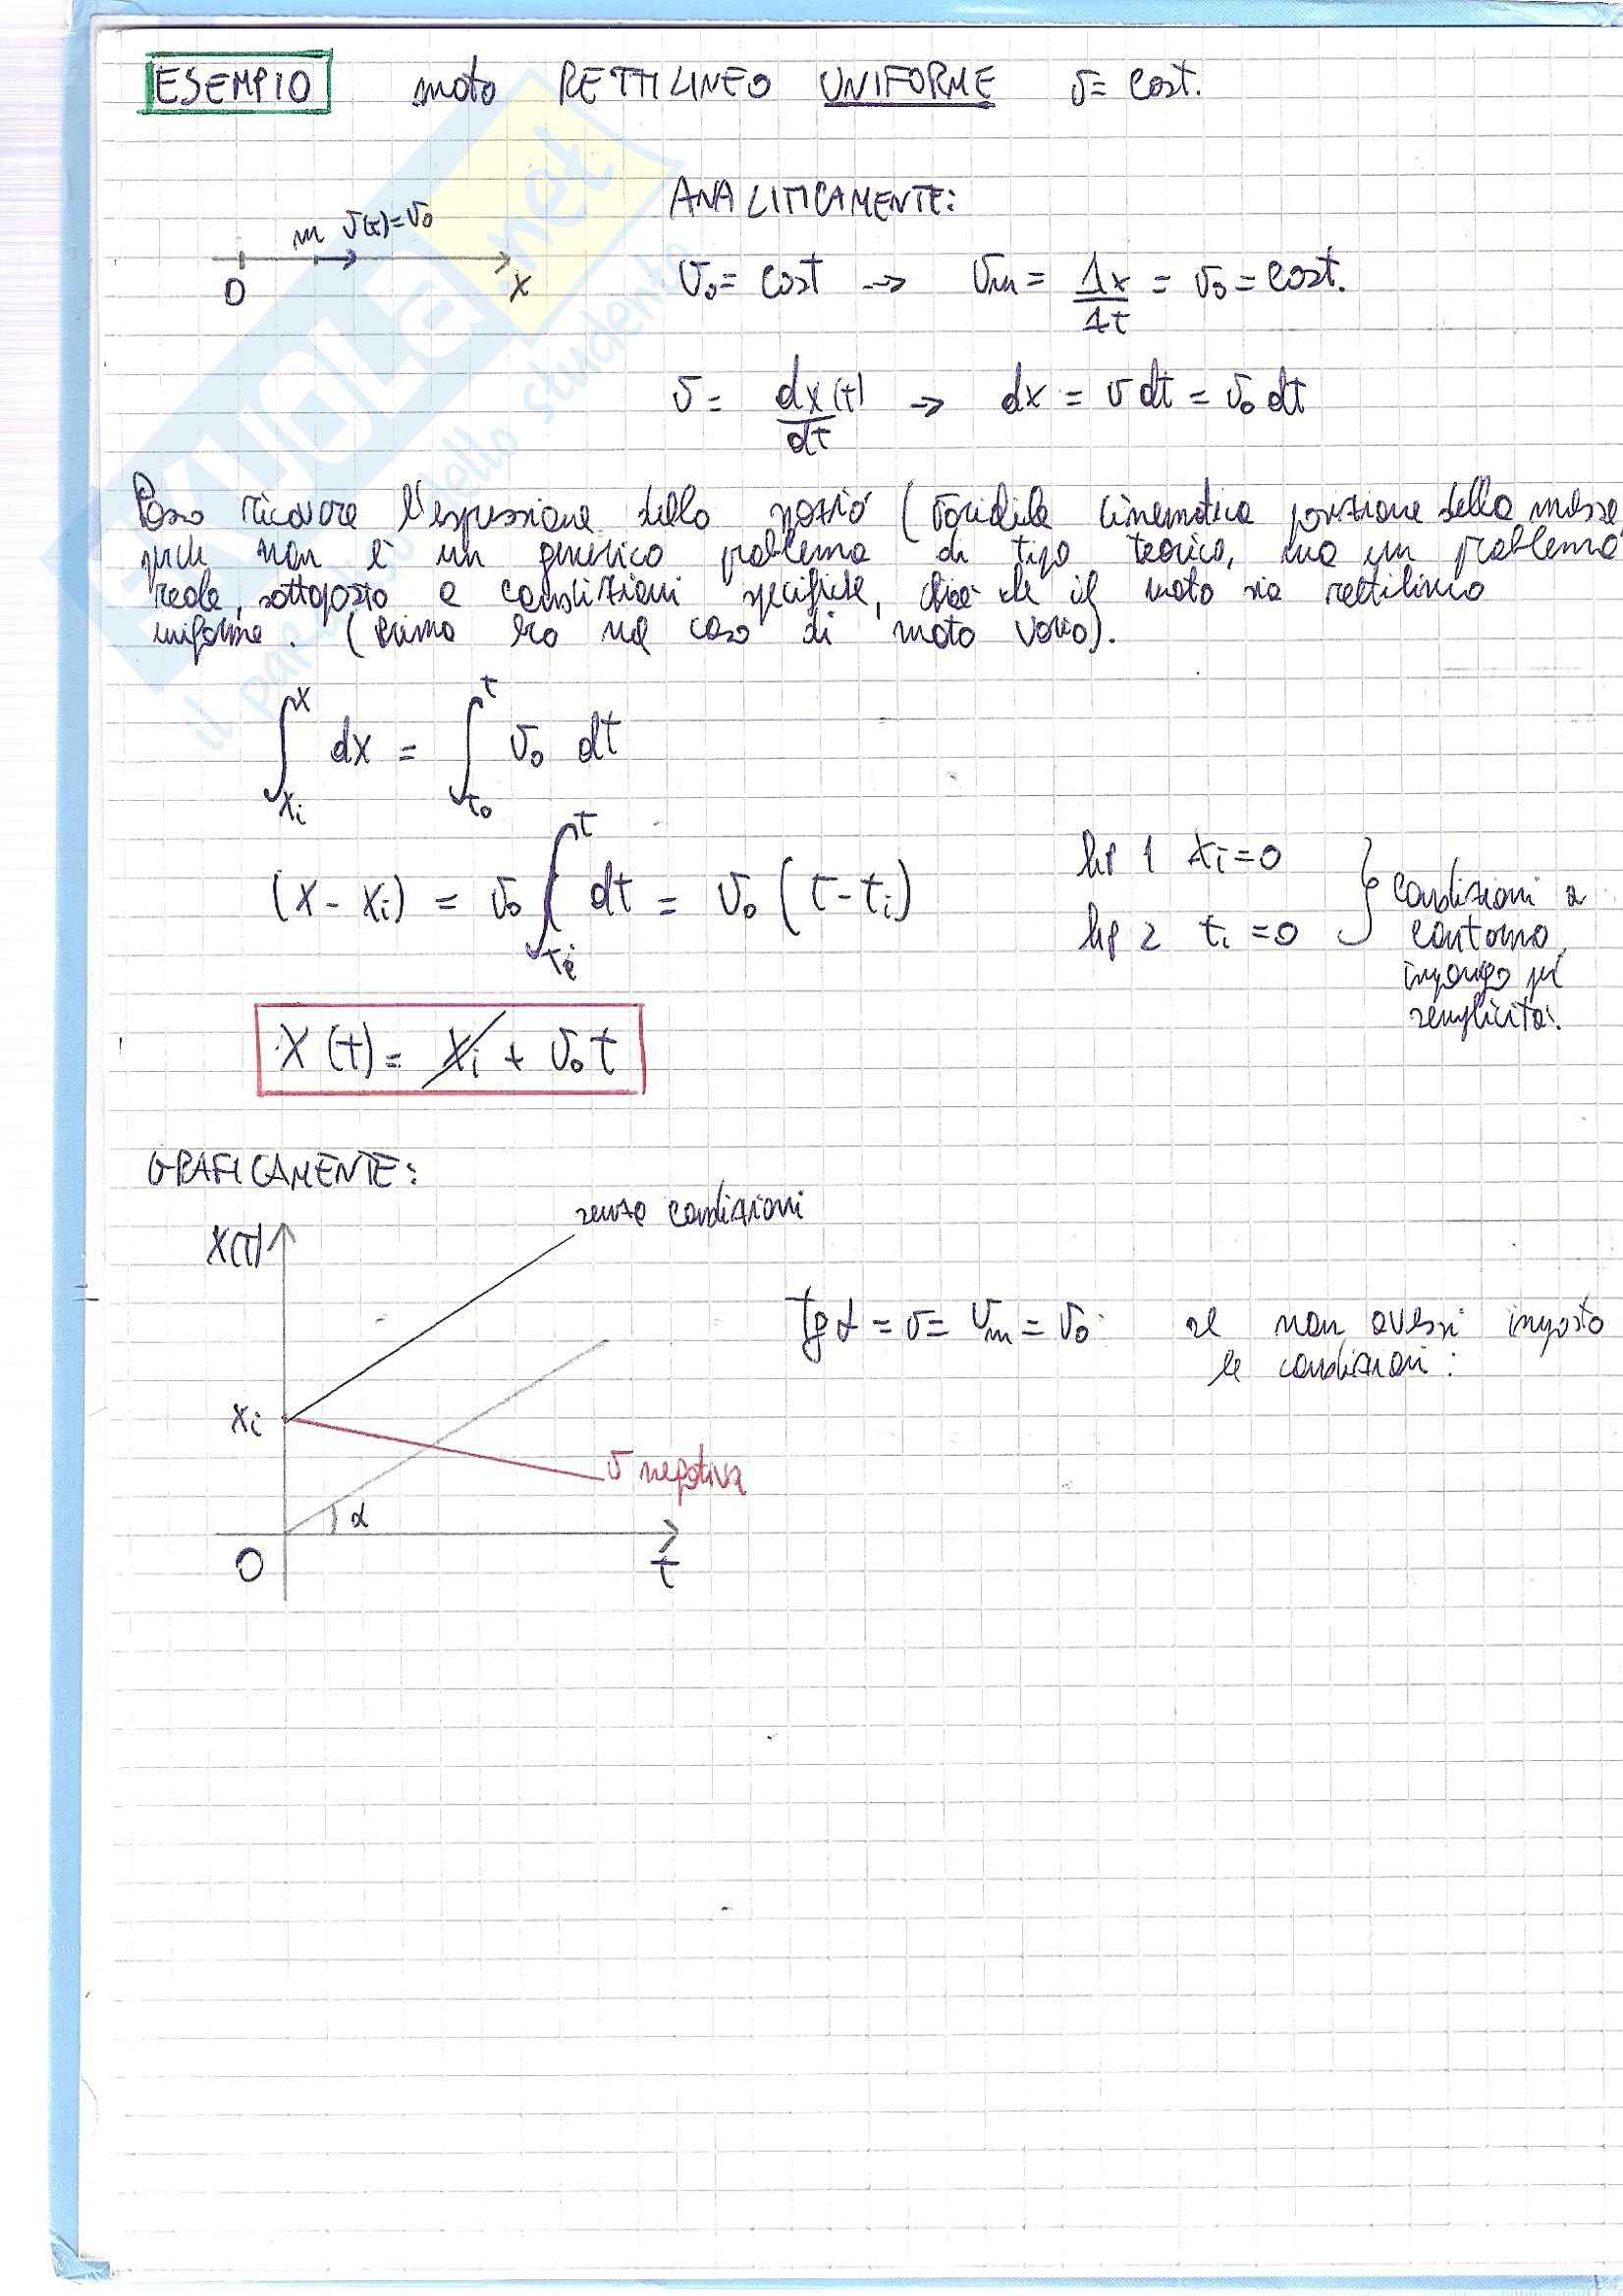 ESEMPIO moto RETTILINEO UNIFORME v = cost.
ANALITICAMENTE:
m v(t)=v₀
O x
v₀ = cost → vₘ = Δx/Δt = v₀ = cost.
v = dx(t)/dt → dx = v dt = v₀ dt
Posso ricavare l'espressione dello spazio (variabile cinematica posizione della massa
non è un generico problema di tipo teorico, ma un problema
reale, sottoposto a condizioni specifiche, cioè che il moto sia rettilineo
uniforme. (prima ero nel caso di moto vario).
∫ₓᵢˣ dx = ∫ₜ₀ᵗ v₀ dt
(x - xᵢ) = v₀ ∫ₜᵢᵗ dt = v₀ (t - tᵢ)
hp 1 xᵢ = 0
hp 2 tᵢ = 0
} condizioni a
contorno,
impongo per
semplicità.
x(t) = xᵢ + v₀ t
GRAFICAMENTE:
senza condizioni
x(t)
tg α = v = vₘ = v₀ se non avessi imposto
le condizioni:
xᵢ
v negativa
α
O t
SKUOLA.net
il paradiso dello studente